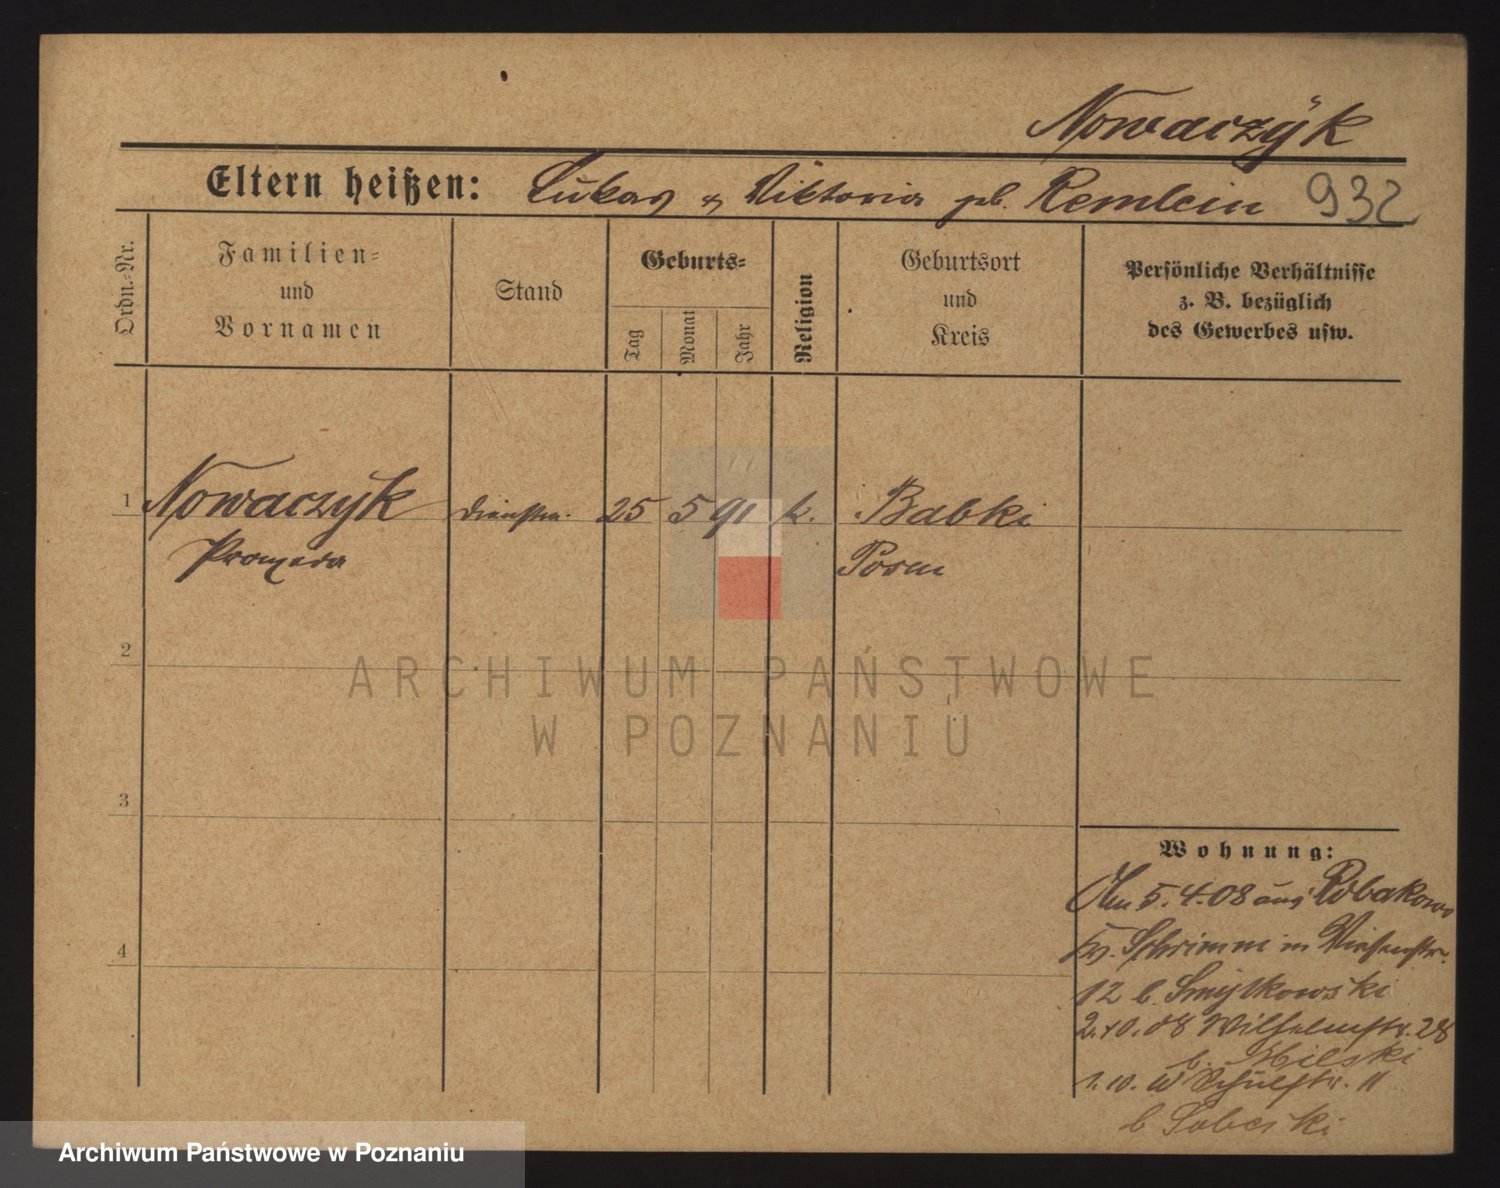 Nowaczÿk
Eltern heißen: Lukas & Viktoria geb. Remlein 932
Ordn.-Nr.
Familien-
und
Vornamen
Stand
Geburts-
Tag
Monat
Jahr
Religion
Geburtsort
und
Kreis
Persönliche Verhältnisse
z. B. bezüglich
des Gewerbes usw.
1 Nowaczÿk 25 5 91 k. Babki
Posen
2
3
4
ARCHIWUM PAŃSTWOWE
W POZNANIU
Wohnung:
Am 5.4.08 aus Robakowo
Kr. Schrimm in
12 b.
2.10.08 Wilhelmstr. 28
b.
1.10. Schulstr. 11
b
Archiwum Państwowe w Poznaniu